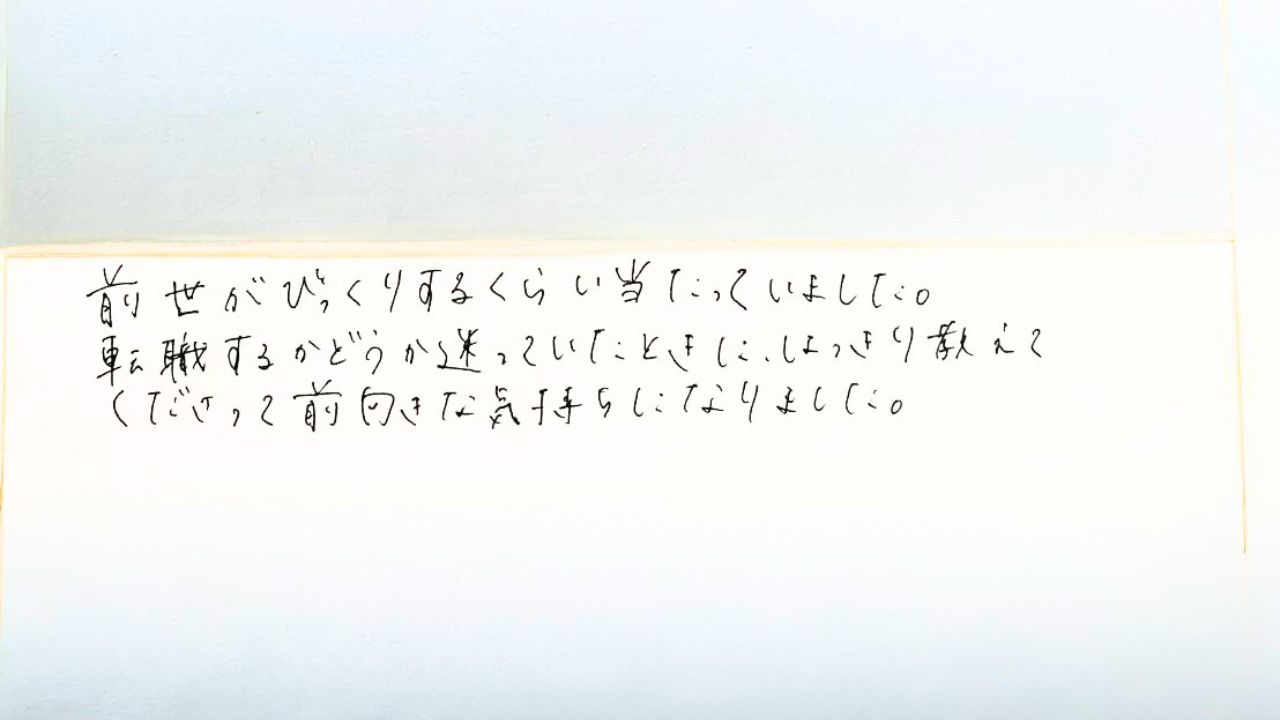 前世がびっくりするくらい当たっていました。
転職するかどうか迷っていたときに、はっきり教えて
くださって前向きな気持ちになりました。